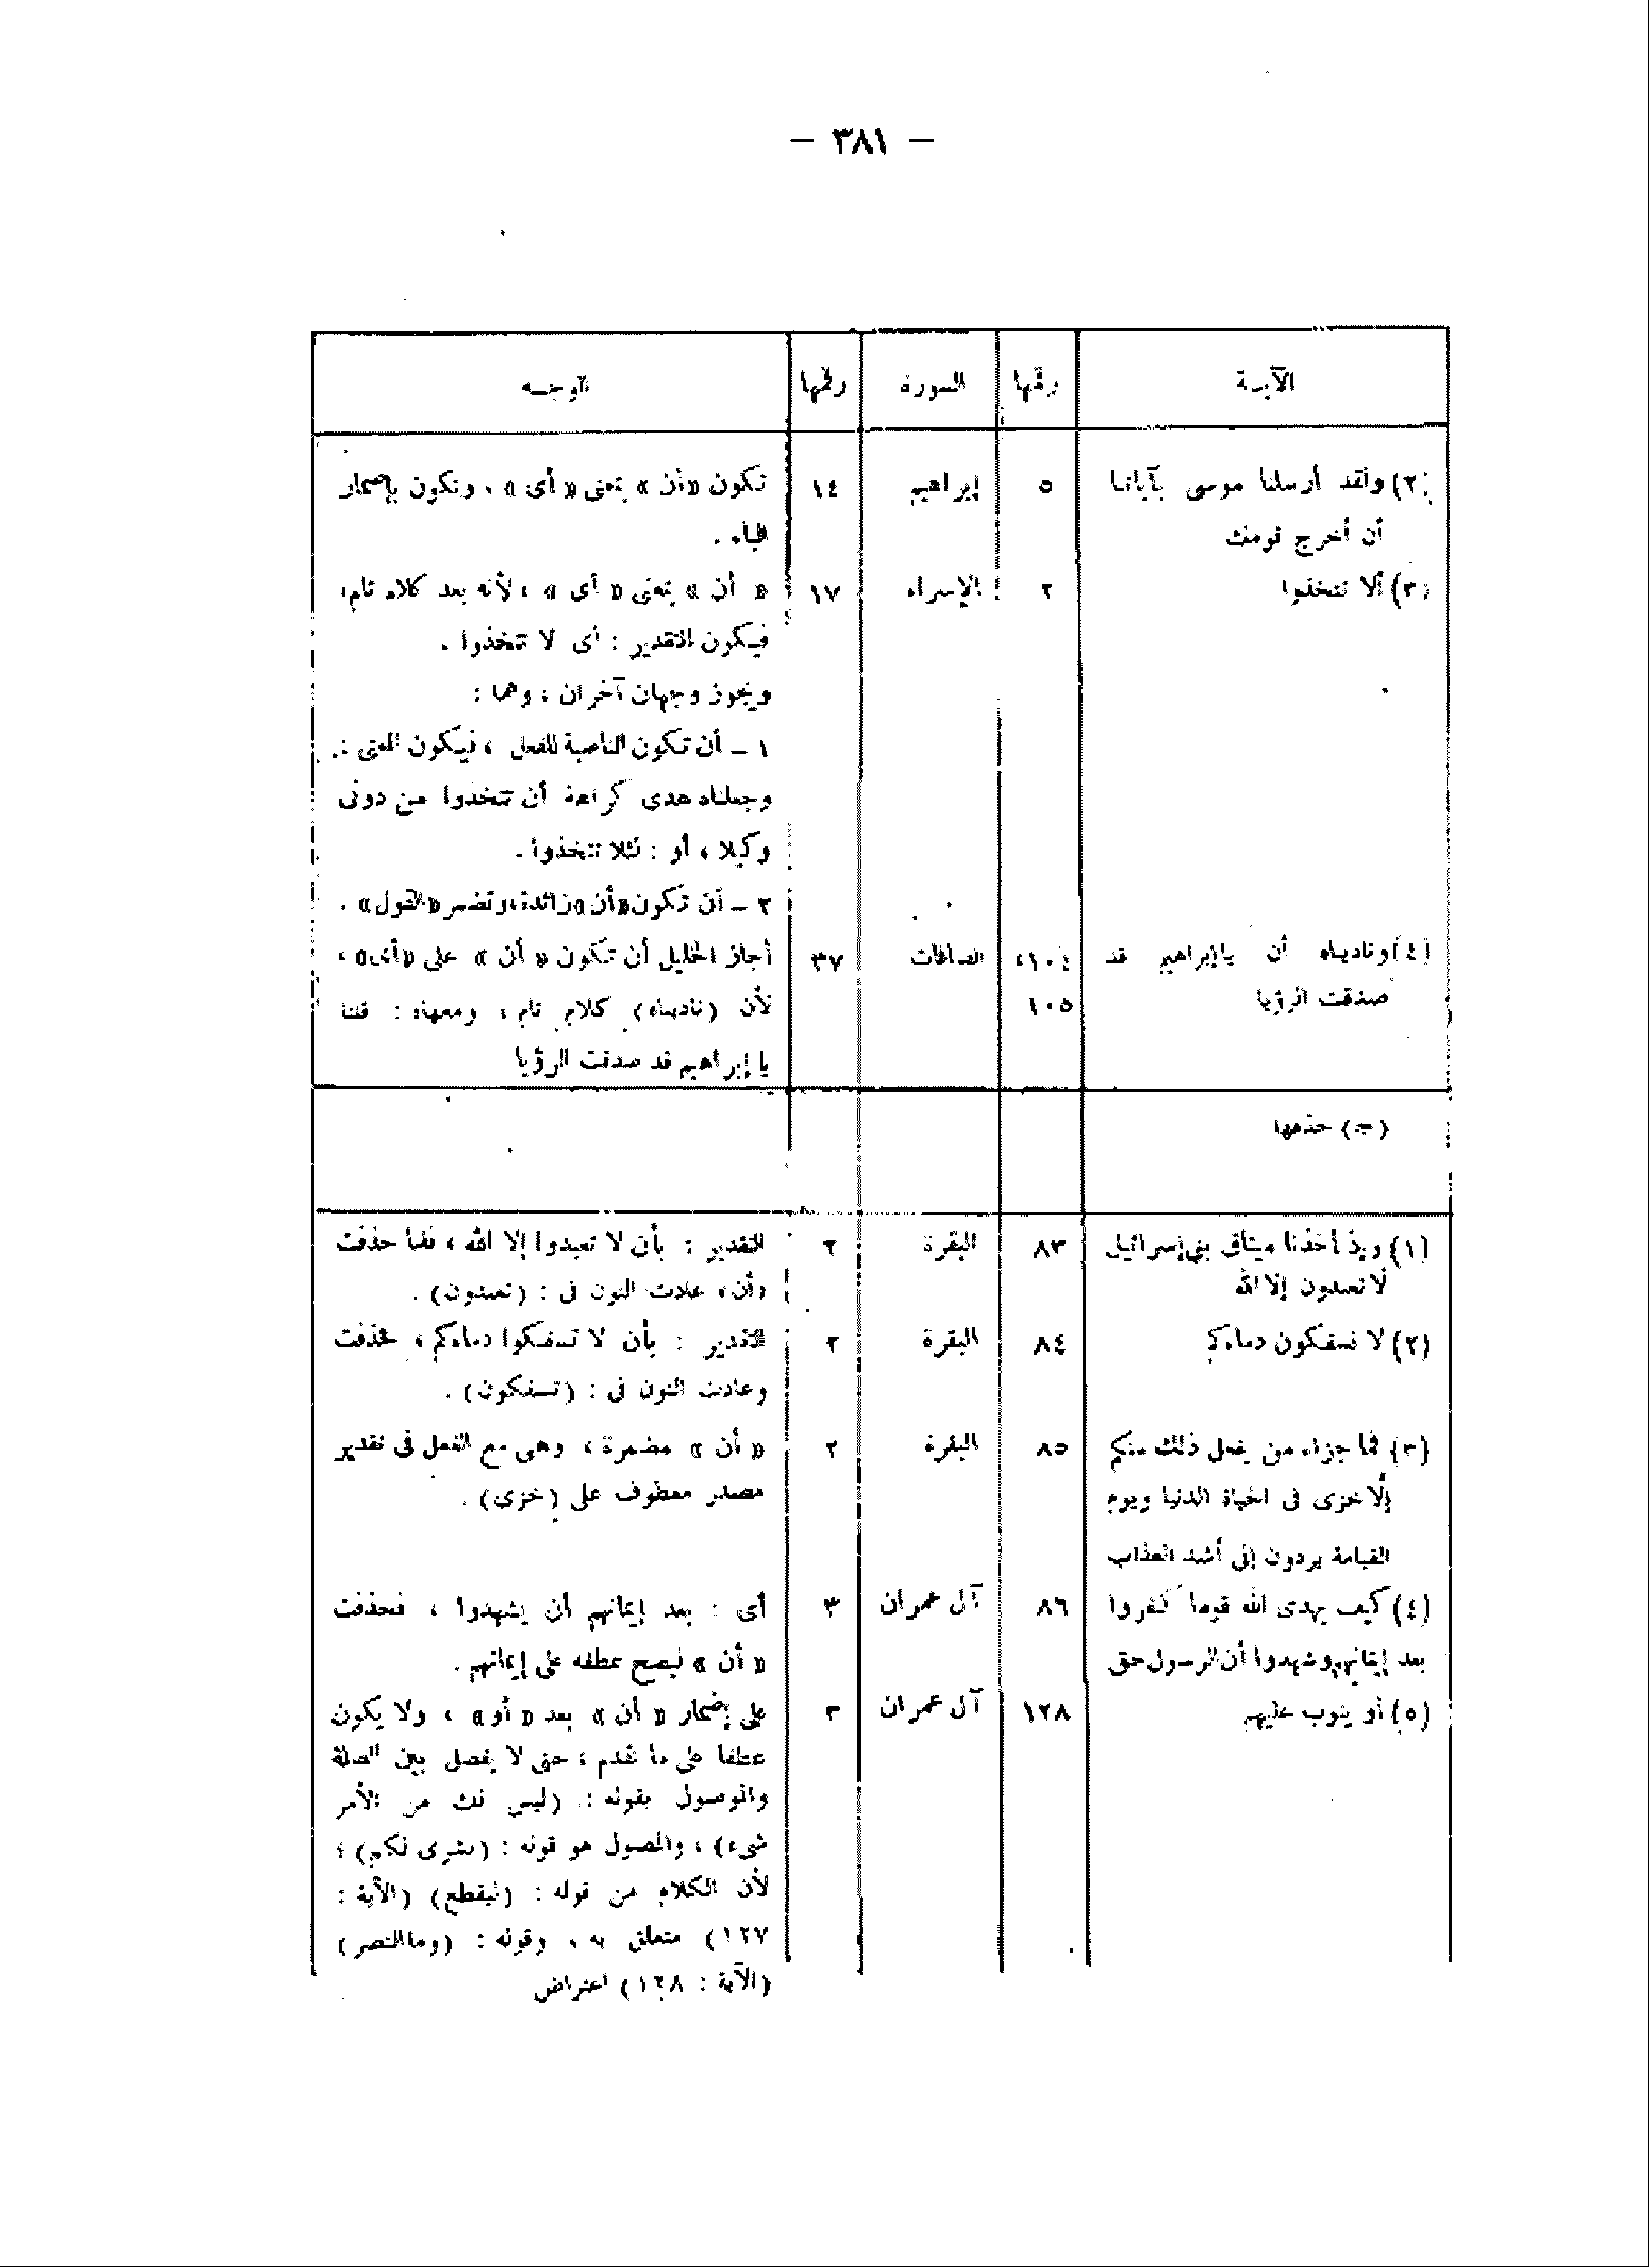 — ٣٨١ —
الآيـة رقمها السورة رقمها الوجـه
(٢) ولقد أرسلنا موسى بآياتنا ٥ إبراهيم ١٤ تكون «أن» بمعنى «أى» ، وتكون بإضمار
أن أخرج قومك الباء .
(٣) ألا تتخذوا ٢ الإسراء ١٧ « أن » بمعنى « أى » ، لأنه بعد كلام تام،
فيكون التقدير : أى لا تتخذوا .
ويجوز وجهان آخران ، وهما :
١ – أن تكون الناصبة للفعل ، فيكون المعنى :
وجعلناه هدى كراهة أن تتخذوا من دونى
وكيلا ، أو : لئلا تتخذوا .
٢ – أن تكون «أن» زائدة، وتضمر «القول» .
(٤) وناديناه أن ياإبراهيم قد ١٠٤، الصافات ٣٧ أجاز الخليل أن تكون « أن » على «أى» ،
صدقت الرؤيا ١٠٥ لأن (ناديناه) كلام تام ، ومعناه : قلنا
يا إبراهيم قد صدقت الرؤيا
(ج) حذفها
(١) وإذ أخذنا ميثاق بنى إسرائيل ٨٣ البقرة ٢ التقدير : بأن لا تعبدوا إلا الله ، فلما حذفت
لا تعبدون إلا الله «أن» عادت النون فى : (تعبدون) .
(٢) لا تسفكون دماءكم ٨٤ البقرة ٢ التقدير : بأن لا تسفكوا دماءكم ، فحذفت
وعادت النون فى : (تسفكون) .
(٣) فما جزاء من يفعل ذلك منكم ٨٥ البقرة ٢ « أن » مضمرة ، وهى مع الفعل فى تقدير
إلا خزى فى الحياة الدنيا ويوم مصدر معطوف على (خزى) .
القيامة يردون إلى أشد العذاب
(٤) كيف يهدى الله قوما كفروا ٨٦ آل عمران ٣ أى : بعد إيمانهم أن يشهدوا ، فحذفت
بعد إيمانهم وشهدوا أن الرسول حق « أن » ليصح عطفه على إيمانهم .
(٥) أو يتوب عليهم ١٢٨ آل عمران ٣ على إضمار « أن » بعد « أو» ، ولا يكون
عطفا على ما تقدم ، حتى لا يفصل بين الصلة
والموصول بقوله : (ليس لك من الأمر
شىء) ، والمصول هو قوله : (بشرى لكم) ،
لأن الكلام من قوله : (ليقطع) (الآية :
١٢٧) متعلق به ، وقوله : (وما النصر)
(الآية : ١٢٨) اعتراض